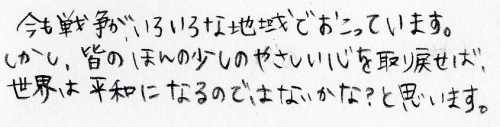 今も戦争がいろいろな地域でおこっています。
しかし、皆のほんの少しのやさしい心を取り戻せば、
世界は平和になるのではないかな？と思います。